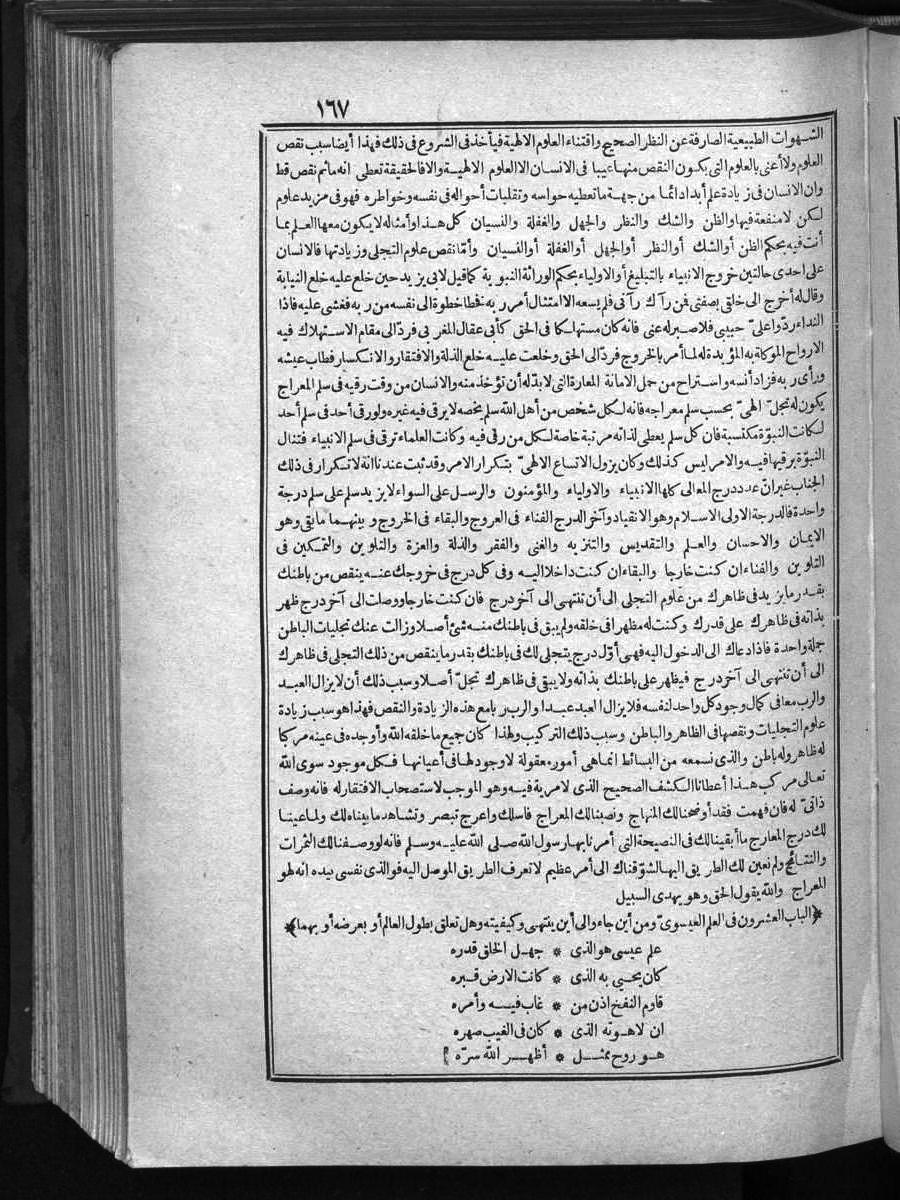 ١٦٧
الشهوات الطبيعية الصارفة عن النظر الصحيح واقتناء العلوم الالهية فيأخذ في الشروع في ذلك فهذا أيضا سبب نقص
العلوم ولا أعني بالعلوم التي يكون النقص منها عيبا في الانسان الا العلوم الالهية والا فالحقيقة تعطى انه ماثم نقص قط
وان الانسان في زيادة علم أبدا دائما من جهة ما تعطيه حواسه وتقلبات أحواله في نفسه وخواطره فهو في مزيد علوم
لكن لا منفعة فيها والظن والشك والنظر والجهل والغفلة والنسيان كل هذا وأمثاله لا يكون معها العلم بما
أنت فيه بحكم الظن أو الشك أو النظر أو الجهل أو الغفلة أو النسيان وأما نقص علوم التجلى وزيادتها فالانسان
على احدى حالتين خروج الانبياء بالتبليغ أو الاولياء بحكم الوراثة النبوية كما قيل لابي يزيد حين خلع عليه خلع النيابة
وقال له أخرج الى خلقى بصفتى فمن رآك رآنى فلم يسعه الا امتثال أمر ربه فخطا خطوة الى نفسه من ربه فغشى عليه فاذا
النداء ردّوا علىّ حبيبى فلا صبر له عنى فانه كان مستهلكا فى الحق كأبى عقال المغربى فردّ الى مقام الاستهلاك فيه
الارواح الموكلة به المؤيدة له لما أمر بالخروج فردّ الى الحق وخلعت عليه خلع الذلة والافتقار والانكسار فطاب عيشه
ورأى ربه فزاد أنسه واستراح من حمل الامانة المعارة التى لا بدّ له أن تؤخذ منه والانسان من وقت رقيه فى سلم المعراج
يكون له تجلّ الهىّ بحسب سلم معراجه فانه لكل شخص من أهل الله سلم يخصه لا يرقى فيه غيره ولو رقى أحد فى سلم أحد
لكانت النبوّة مكتسبة فان كل سلم يعطى لذاته مرتبة خاصة لكل من رقى فيه وكانت العلماء ترقى فى سلم الانبياء فتنال
النبوّة برقيها فيه والامر ليس كذلك وكان يزول الاتساع الالهىّ بتكرار الامر وقد ثبت عندنا انه لا تكرار فى ذلك
الجناب غير انّ عدد درج المعالى كلها الانبياء والاولياء والمؤمنون والرسل على السواء لا يزيد سلم على سلم درجة
واحدة فالدرجة الاولى الاسلام وهو الانقياد وآخر الدرج الفناء فى العروج والبقاء فى الخروج وبينهما ما بقى وهو
الايمان والاحسان والعلم والتقديس والتنزيه والغنى والفقر والذلة والعزة والتلوين والتمكين فى
التلوين والفناء ان كنت خارجا والبقاء ان كنت داخلا اليه وفى كل درج فى خروجك عنه ينقص من باطنك
بقدر ما يزيد فى ظاهرك من علوم التجلى الى أن تنتهى الى آخر درج فان كنت خارجا ووصلت الى آخر درج ظهر
بذاته فى ظاهرك على قدرك وكنت له مظهرا فى خلقه ولم يبق فى باطنك منه شئ أصلا وزالت عنك تجليات الباطن
جملة واحدة فاذا دعاك الى الدخول اليه فهى أوّل درج يتجلى لك فى باطنك بقدر ما ينقص من ذلك التجلى فى ظاهرك
الى أن تنتهى الى آخر درج فيظهر على باطنك بذاته ولا يبقى فى ظاهرك تجلّ أصلا وسبب ذلك أن لا يزال العبد
والرب معا فى كمال وجود كل واحد لنفسه فلا يزال العبد عبدا والرب ربا مع هذه الزيادة والنقص فهذا هو سبب زيادة
علوم التجليات ونقصها فى الظاهر والباطن وسبب ذلك التركيب ولهذا كان جميع ما خلقه الله وأوجده فى عينه مركبا
له ظاهر وله باطن والذى نسمعه من البسائط انما هى أمور معقولة لا وجود لها فى أعيانها فكل موجود سوى الله
تعالى مركب هذا أعطانا الكشف الصحيح الذى لا مرية فيه وهو الموجب لاستصحاب الافتقار له فانه وصف
ذاتىّ له فان فهمت فقد أوضحنا لك المنهاج ونصبنا لك المعراج فاسلك واعرج تبصر وتشاهد ما بيناه لك ولما عينا
لك درج المعارج ما أبقينا لك فى النصيحة التى أمرنا بها رسول الله صلى الله عليه وسلم فانه لو وصفنا لك الثمرات
والنتائج ولم نعين لك الطريق اليها لشوّقناك الى أمر عظيم لا تعرف الطريق الموصل اليه فو الذى نفسى بيده انه لهو
المعراج والله يقول الحق وهو يهدى السبيل
﴿الباب العشرون فى العلم العيسوىّ ومن أين جاء والى أين ينتهى وكيفيته وهل تعلق بطول العالم أو بعرضه أو بهما﴾
علم عيسى هو الذى * جهل الخلق قدره
كان يحيى به الذى * كانت الارض قبره
قاوم النفخ اذن من * غاب فيه وأمره
ان لاهوته الذى * كان فى الغيب صهره
هو روح ممثل * أظهر الله سرّه